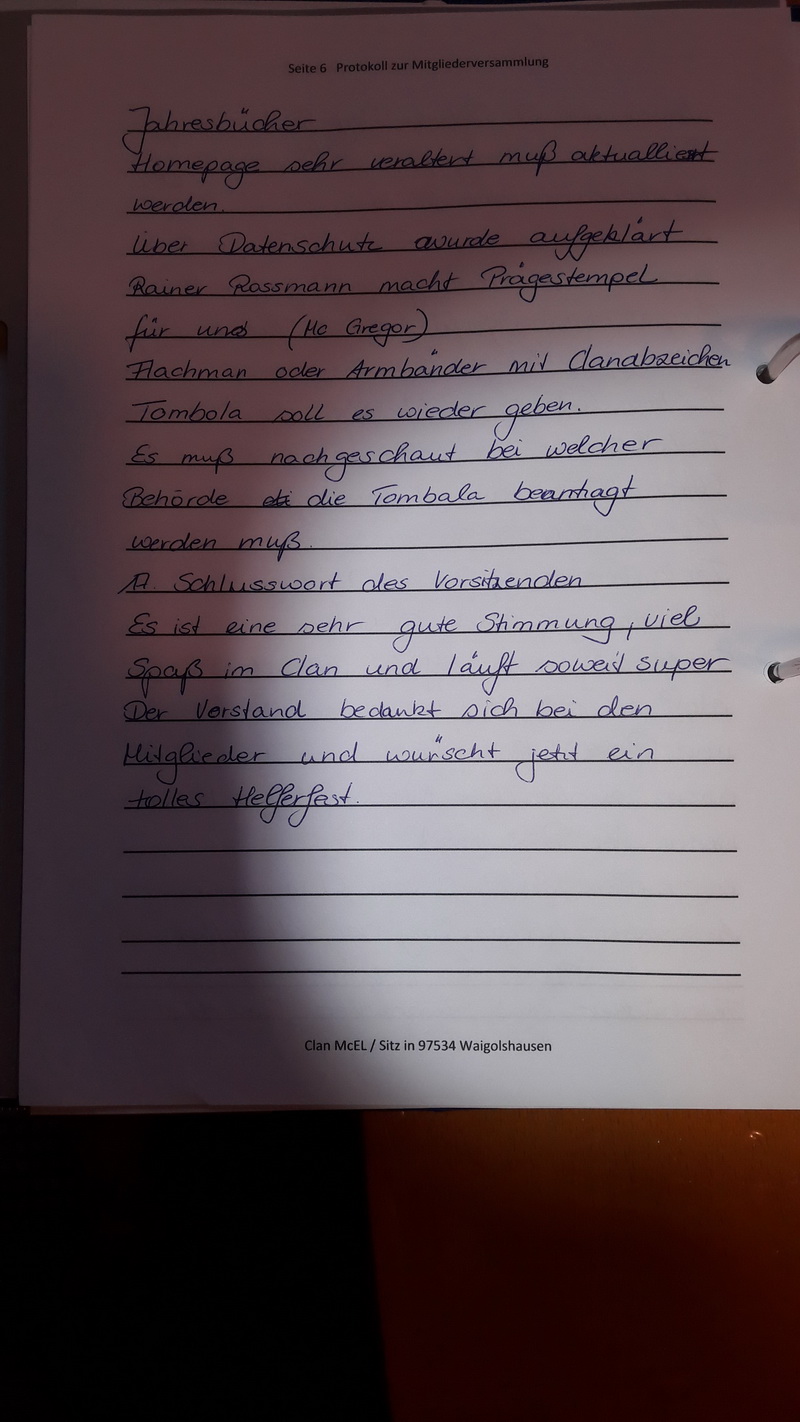 Seite 6 Protokoll zur Mitgliederversammlung
Jahresbücher
Homepage sehr veraltert muß aktualliert
werden.
Über Datenschutz wurde aufgeklärt
Rainer Rossmann macht Prägestempel
für uns (Mc Gregor)
Flachman oder Armbänder mit Clanabzeichen
Tombola soll es wieder geben.
Es muß nachgeschaut bei welcher
Behörde die Tombala beantragt
werden muß.
Schlusswort des Vorsitzenden
Es ist eine sehr gute Stimmung, viel
Spaß im Clan und läuft soweit super
Der Vorstand bedankt sich bei den
Mitglieder und wünscht jetzt ein
tolles Helferfest.
Clan McEL / Sitz in 97534 Waigolshausen